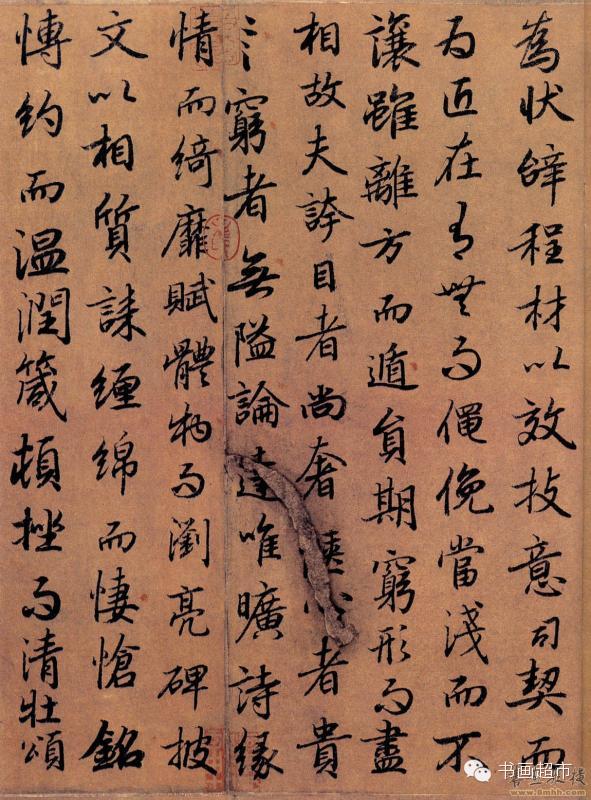 為狀辝程材以效技意司契而
為匠在有無而僶俛當淺而不
讓雖離方而遁貟期窮形而盡
相故夫誇目者尚奢心者貴
窮者無隘論達唯曠詩緣
情而綺靡賦體物而瀏亮碑披
文以相質誄纏綿而悽愴銘
博約而温潤箴頓挫而清壯頌
书画超市